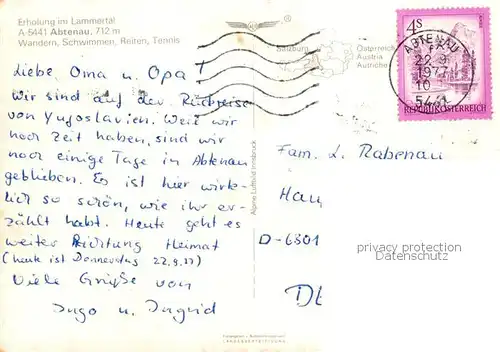 Erholung im Lammertal
A-5441 Abtenau, 712 m
Wandern, Schwimmen, Reiten, Tennis
Salzburg
Österreich
Austria
Autriche
4S
REPUBLIK ÖSTERREICH
ABTENAU
22.9.
1977
10
5441
Liebe Oma u. Opa!
Wir sind auf der Rückreise
von Yugoslavien. Weil wir
noch Zeit haben, sind wir
noch einige Tage in Abtenau
geblieben. Es ist hier wirk-
lich so schön, wie ihr er-
zählt habt. Heute geht es
weiter Richtung Heimat
(heute ist Donnerstag 22.9.77)
Viele Grüße von
Ingo u. Ingrid
Alpine Luftbild Innsbruck
Fam. L. Rabenau
Hau
D-6301
privacy protection
Datenschutz